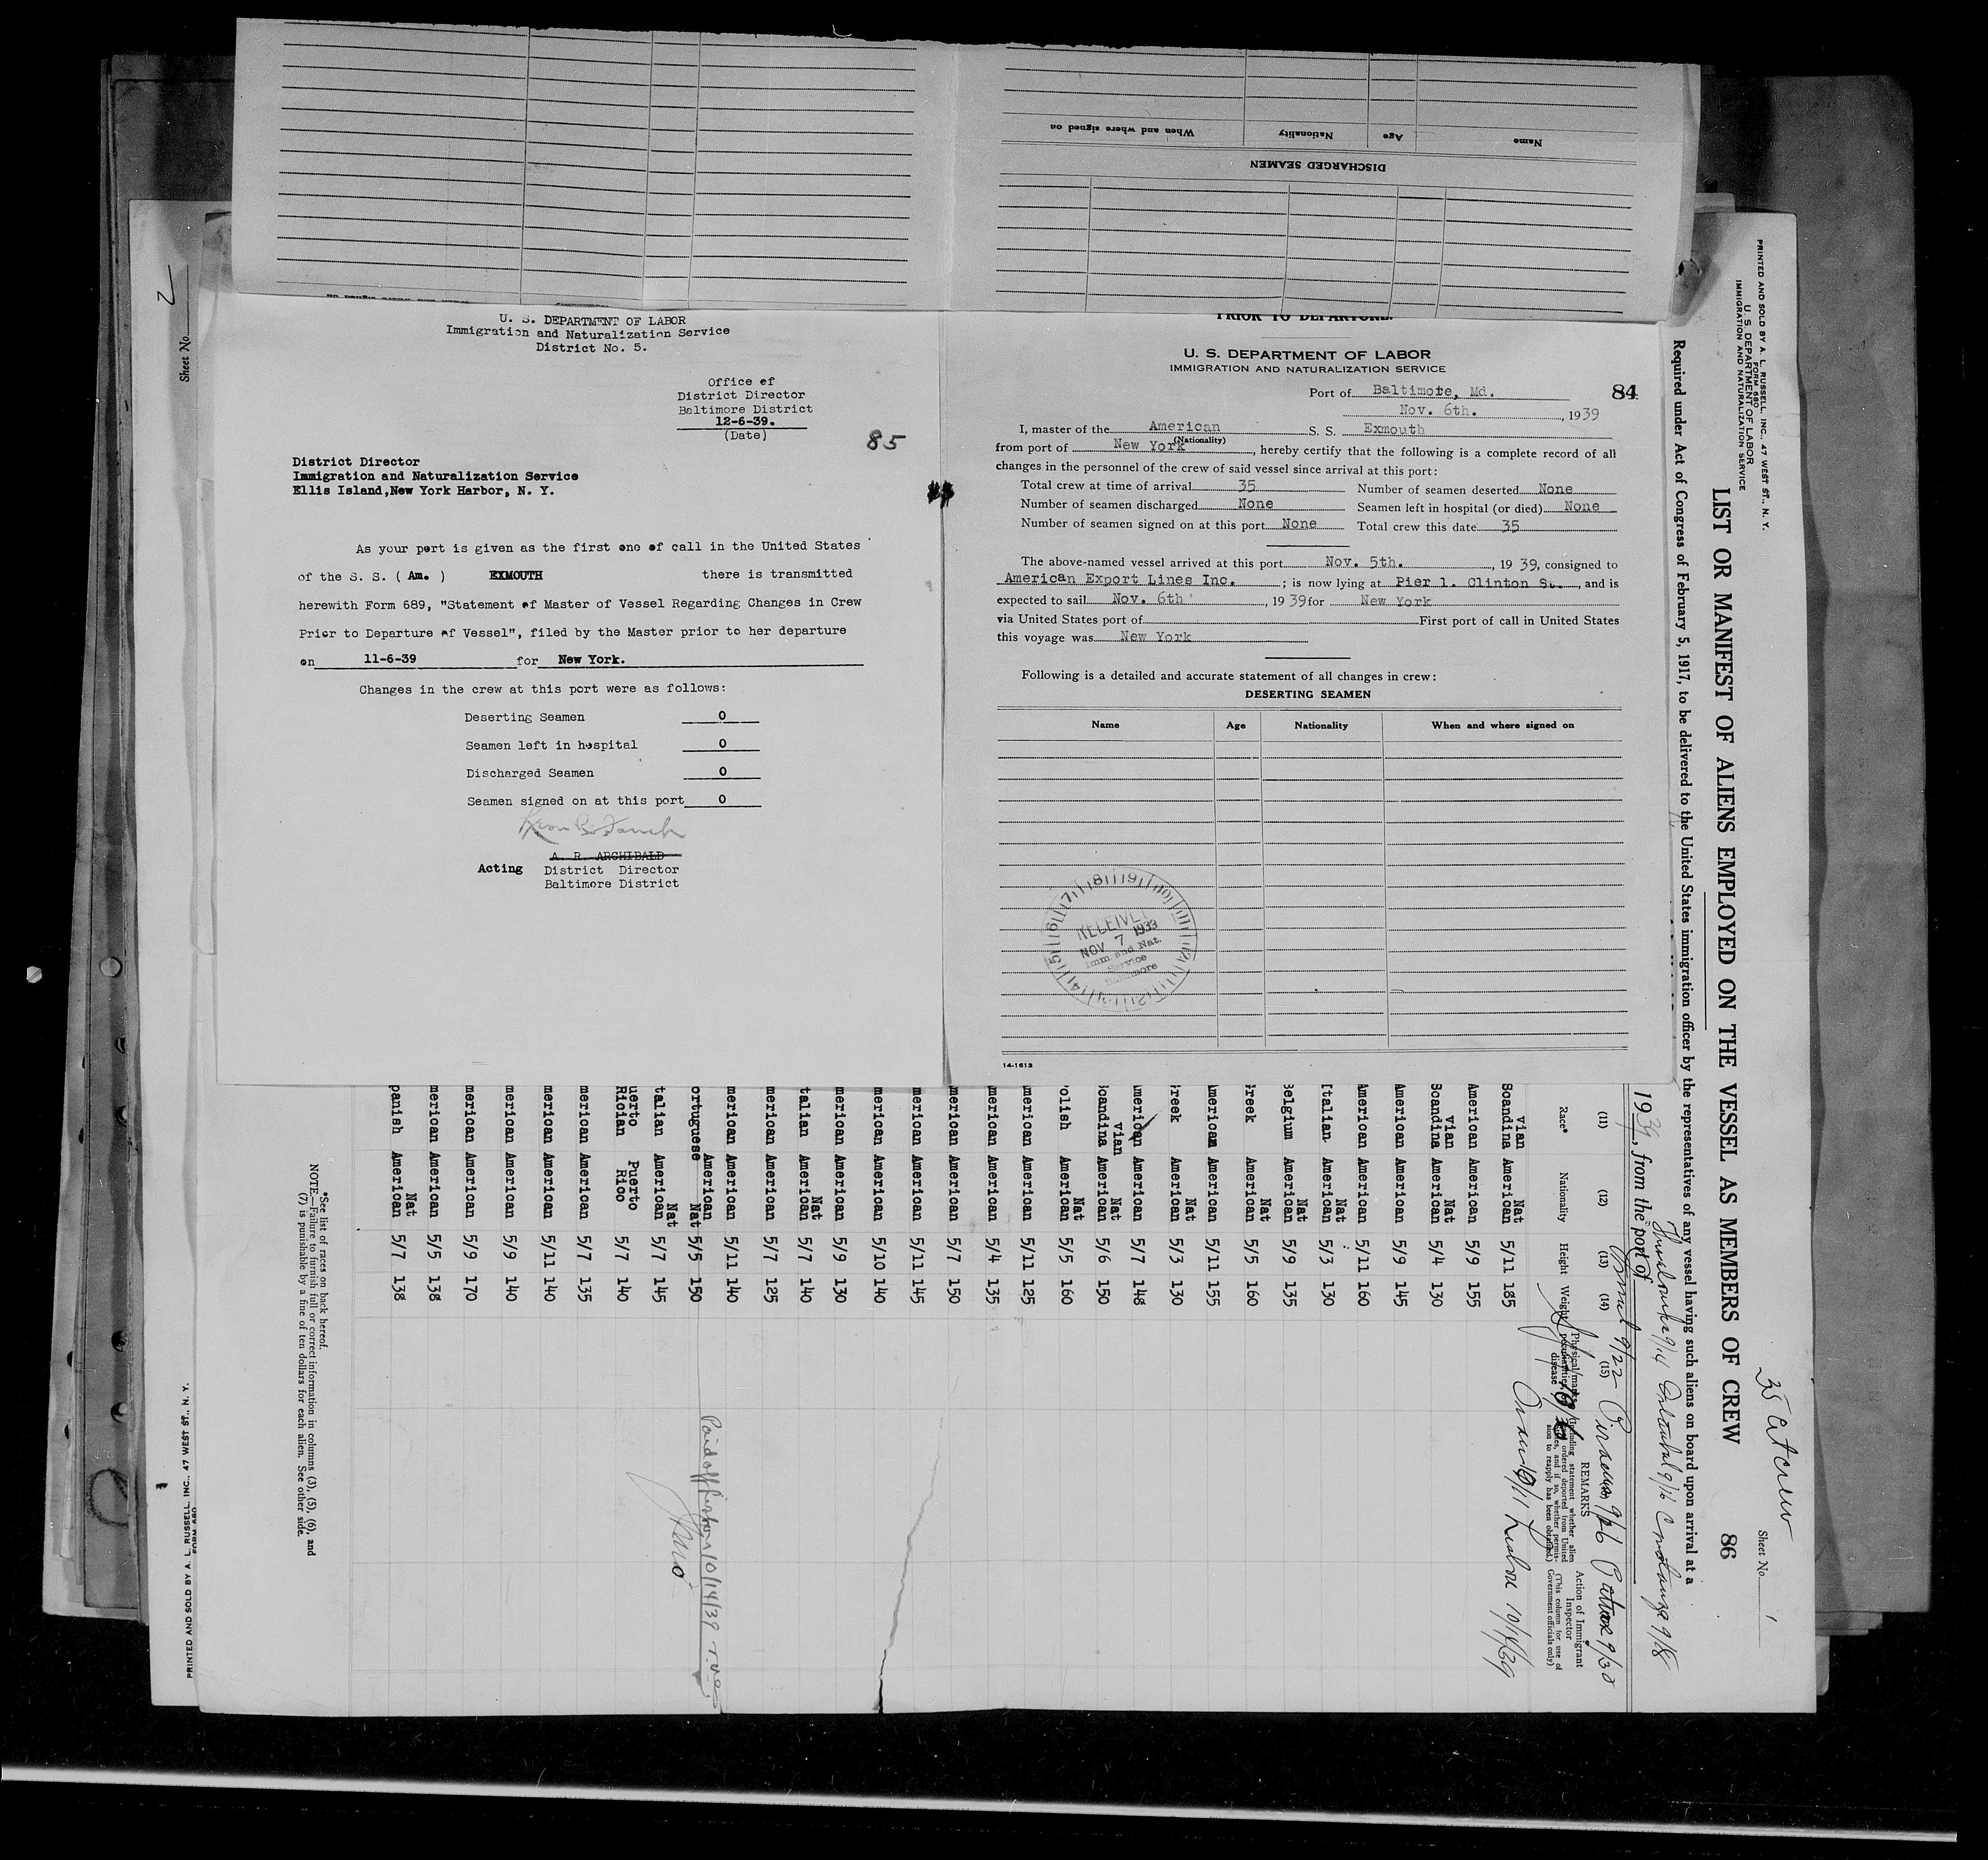 When and where signed on
Nationality
Age
Name
DISCHARGED SEAMEN
U. S. DEPARTMENT OF LABOR
Immigration and Naturalization Service
District No. 5.
Office of
District Director
Baltimore District
12-6-39.
(Date)
85
District Director
Immigration and Naturalization Service
Ellis Island,New York Harbor, N. Y.
As your port is given as the first one of call in the United States
of the S. S. ( Am. ) EXMOUTH there is transmitted
herewith Form 689, "Statement of Master of Vessel Regarding Changes in Crew
Prior to Departure of Vessel", filed by the Master prior to her departure
on 11-6-39 for New York.
Changes in the crew at this port were as follows:
Deserting Seamen 0
Seamen left in hospital 0
Discharged Seamen 0
Seamen signed on at this port 0
A. R. ARCHIBALD
Acting District Director
Baltimore District
PRIOR TO DEPARTURE.
U. S. DEPARTMENT OF LABOR
IMMIGRATION AND NATURALIZATION SERVICE
Port of Baltimore, Md. 84
Nov. 6th. , 1939
I, master of the American S. S. Exmouth
(Nationality)
from port of New York , hereby certify that the following is a complete record of all
changes in the personnel of the crew of said vessel since arrival at this port:
Total crew at time of arrival 35 Number of seamen deserted None
Number of seamen discharged None Seamen left in hospital (or died) None
Number of seamen signed on at this port None Total crew this date 35
The above-named vessel arrived at this port Nov. 5th. , 19 39, consigned to
American Export Lines Inc. ; is now lying at Pier 1. Clinton St. , and is
expected to sail Nov. 6th , 19 39 for New York
via United States port of First port of call in United States
this voyage was New York
Following is a detailed and accurate statement of all changes in crew:
DESERTING SEAMEN
Name Age Nationality When and where signed on
RECEIVED
NOV 7 1933
Imm and Nat.
Service
Baltimore
14-1613
PRINTED AND SOLD BY A. L. RUSSELL, INC., 47 WEST ST., N. Y.
FORM 680
U. S. DEPARTMENT OF LABOR
IMMIGRATION AND NATURALIZATION SERVICE
35 at crew
Sheet No. 1
LIST OR MANIFEST OF ALIENS EMPLOYED ON THE VESSEL AS MEMBERS OF CREW 86
Required under Act of Congress of February 5, 1917, to be delivered to the United States immigration officer by the representatives of any vessel having such aliens on board upon arrival at a
1939, from the port of
9/14 Istanbul 9/16 Constanza 9/18
9/22 Piraeus 9/26 Patras 9/30
Oran 10/11 Lisbon 10/14/39
(11) (12) (13) (14) (15)
Race* Nationality Height Weight Physical marks, peculiarities, or disease
REMARKS
Action of Immigrant Inspector
(This column for use of Government officials only)
Scandinavian Nat American 5/11 185
American American 5/9 155
Scandinavian Nat American 5/4 130
American American 5/9 145
American American 5/11 160
Italian Nat American 5/3 130
Belgium Nat American 5/9 135
Greek Nat American 5/5 160
American American 5/11 155
Greek Nat American 5/3 130
American American 5/7 148
Scandinavian Nat American 5/6 150
olish Nat American 5/5 160
merican American 5/11 125
merican American 5/4 135
merican American 5/7 150
merican American 5/11 145
merican American 5/10 140
merican American 5/9 130
talian Nat American 5/7 140
merican American 5/7 125
merican American 5/11 140
ortuguese American Nat 5/5 150
Paid off Lisbon 10/14/39
talian Nat American 5/7 145
uerto Rician Puerto Rico 5/7 140
merican American 5/7 135
merican American 5/11 140
merican American 5/9 140
merican American 5/9 170
merican American 5/5 138
panish Nat American 5/7 138
*See list of races on back hereof.
NOTE.—Failure to furnish full or correct information in columns (3), (5), (6), and
(7) is punishable by a fine of ten dollars for each alien. See other side.
Sheet No. 2
PRINTED AND SOLD BY A. L. RUSSELL, INC., 47 WEST ST., N. Y.
FORM 680